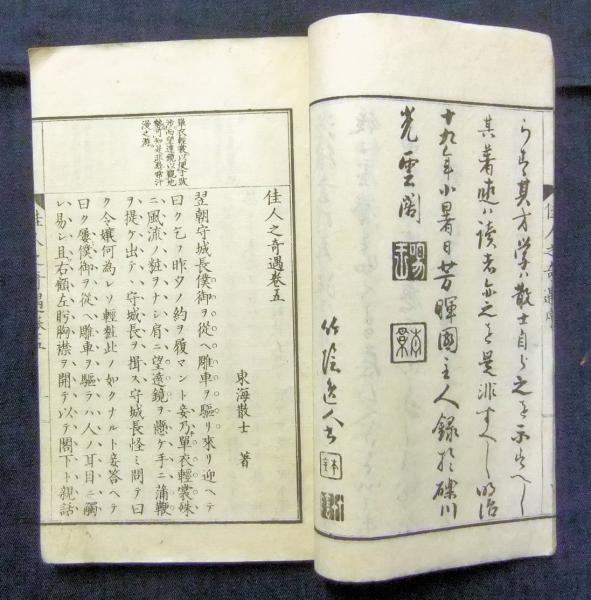 らす其才学ハ散士自ら之を示すへし
其著述ハ読者亦之を是非すへし明治
十九年小暑日芳暉園主人録於礫川
光霊閣
佳人之奇遇
佳人之奇遇卷五
東海散士 著
翌朝守城長僕御ヲ從ヘ雕車ヲ驅リ來リ迎ヘテ
曰ク乞フ昨夕ノ約ヲ履マント妾乃單衣輕裳姝
ニ風流ノ粧ヲナシ肩ニ望遠鏡ヲ懸ケ手ニ蒲鞭
ヲ提ケ出テ、守城長ヲ揖ス守城長怪ミ問テ曰
ク令孃何為レソ輕粧此ノ如クナルト妾答ヘテ
曰ク僕御ヲ從ヘ雕車ヲ驅ラハ人ノ耳目ニ觸
レ易シ且右顧左眄胸襟ヲ開テ以テ閣下ト親話
單衣輕裳以便于跋
涉而望遠鏡以觀地
勢可知是非尋常汗
漫之游
佳人之奇遇卷五